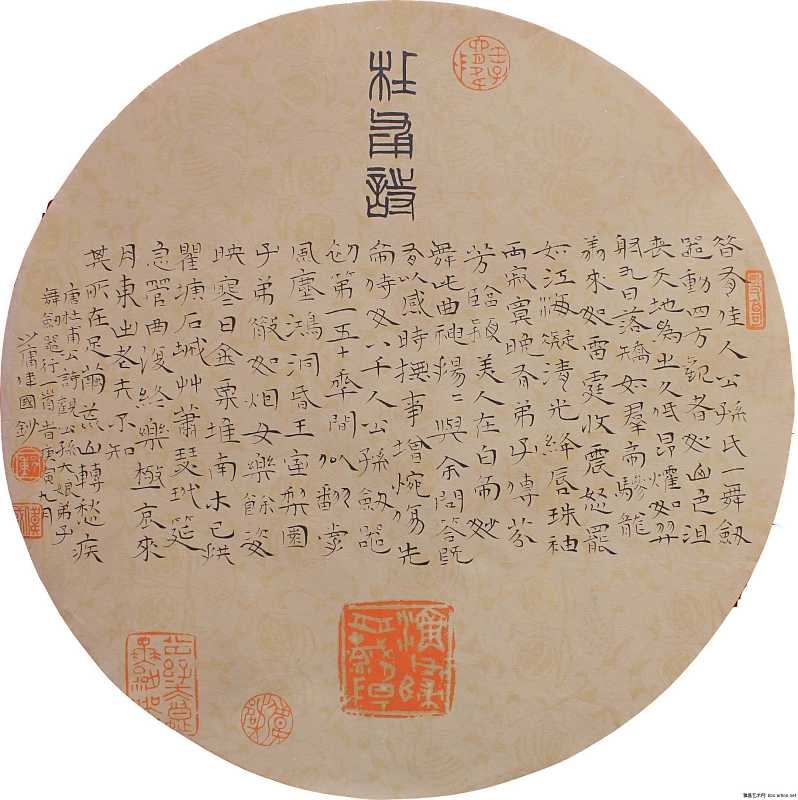 杜甫詩
昔有佳人公孫氏一舞劔
器動四方觀者如山色沮
喪天地為之久低昂㸌如羿
射九日落矯如羣帝驂龍
翔來如雷霆收震怒罷
如江海凝清光絳唇珠袖
兩寂寞晚有弟子傳芬
芳臨潁美人在白帝妙
舞此曲神揚〻與余問答既
有以感時撫事增惋傷先
帝侍女八千人公孫劔器
初第一五十年間似翻掌
風塵鴻洞昏王室梨園
子弟散如烟女樂餘姿
映寒日金粟堆南木已拱
瞿塘石城艸蕭瑟玳筵
急管曲復終樂極哀來
月東出老夫不知
其所在足繭荒山轉愁疾
唐杜甫公詩觀公孫大娘弟子
舞劔器行一首旹庚寅九月
國鈔
雅昌艺术网 bbs.artron.net